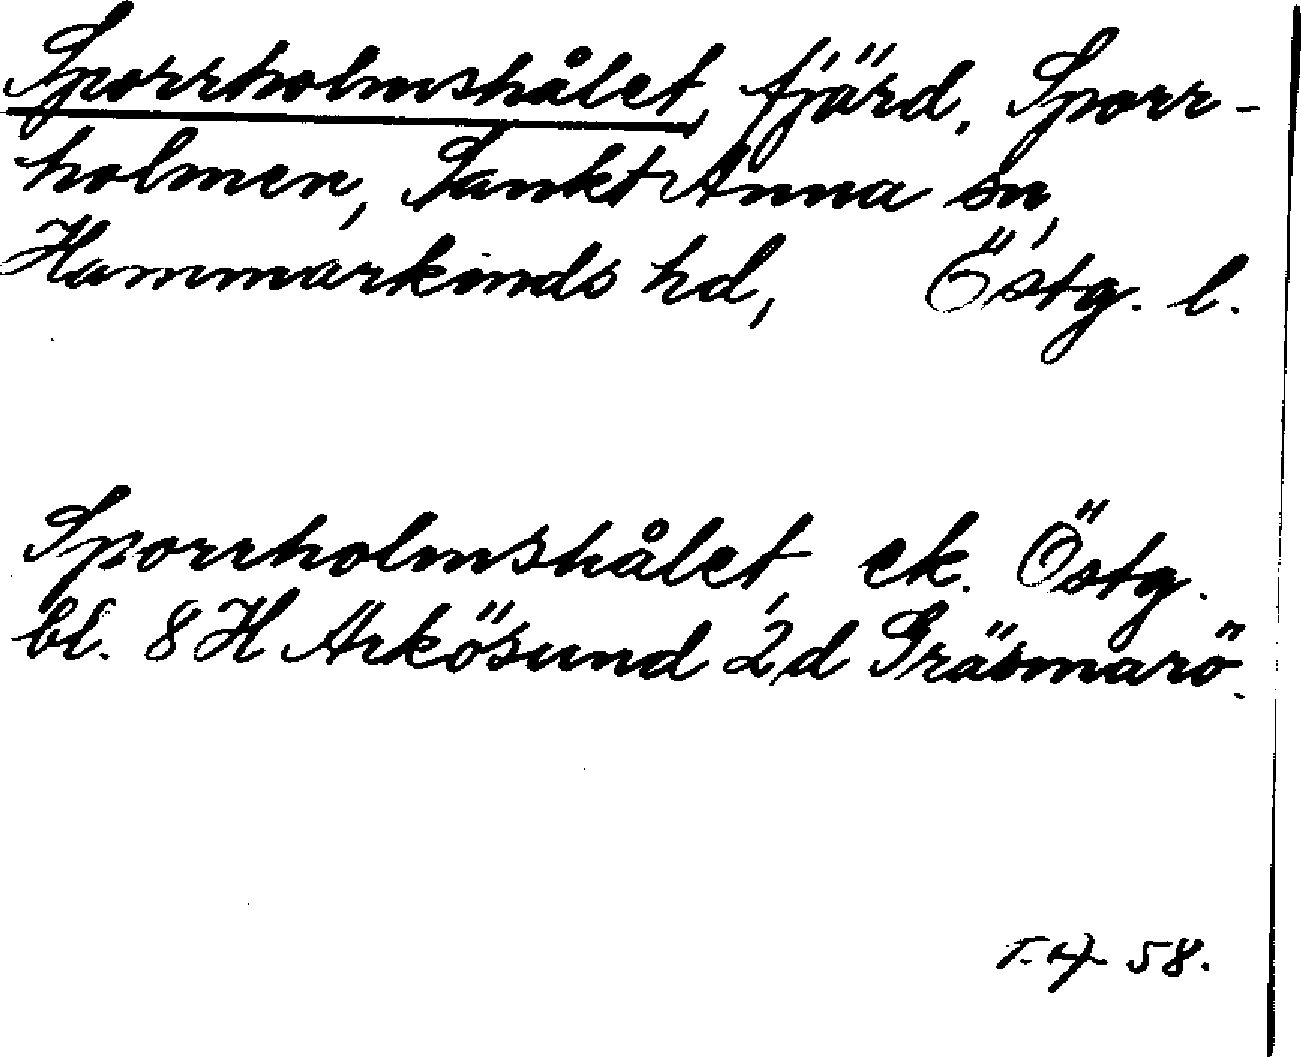 Sporrholmshålet, fjärd, Sporr-
holmen, Sankt Anna sn,
Hammarkinds hd, Östg. l.
Sporrholmshålet, ek. Östg.
bl. 8 H Arkösund 2d Gräsmarö.
58.